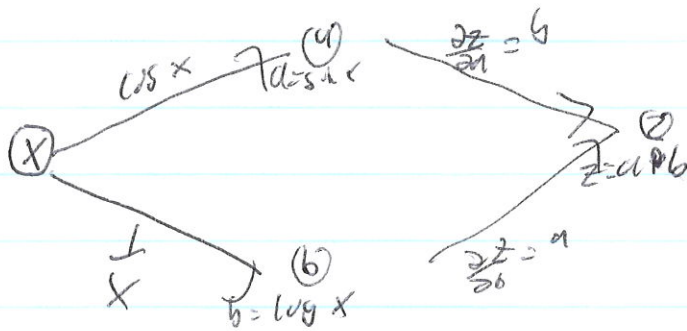 cos x
a
a = sin x
∂z/∂a = b
x
z
z = a * b
1/x
b
b = log x
∂z/∂b = a